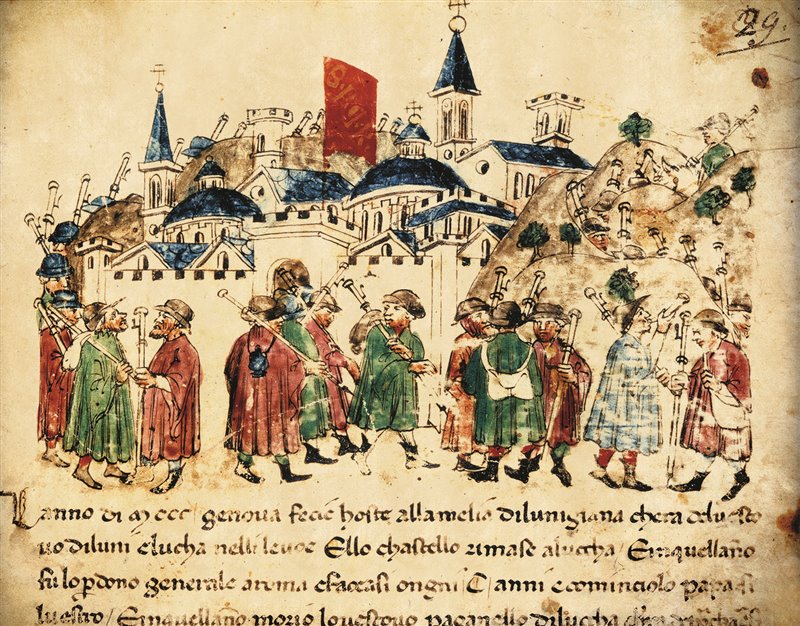 29.
S.P.Q.R
Lanno di MCCC / genova fecie hoste alla melia di lunigiana chera del vesco
vo di luni e lucha nelli levoe Ello chastello rimase a luccha / Einquellano
fu lo pdono generale a roma che faccasi ongni C / anni e cominciolo papa si
luestro / Einquellano morio lo vescovo paganello di lucha